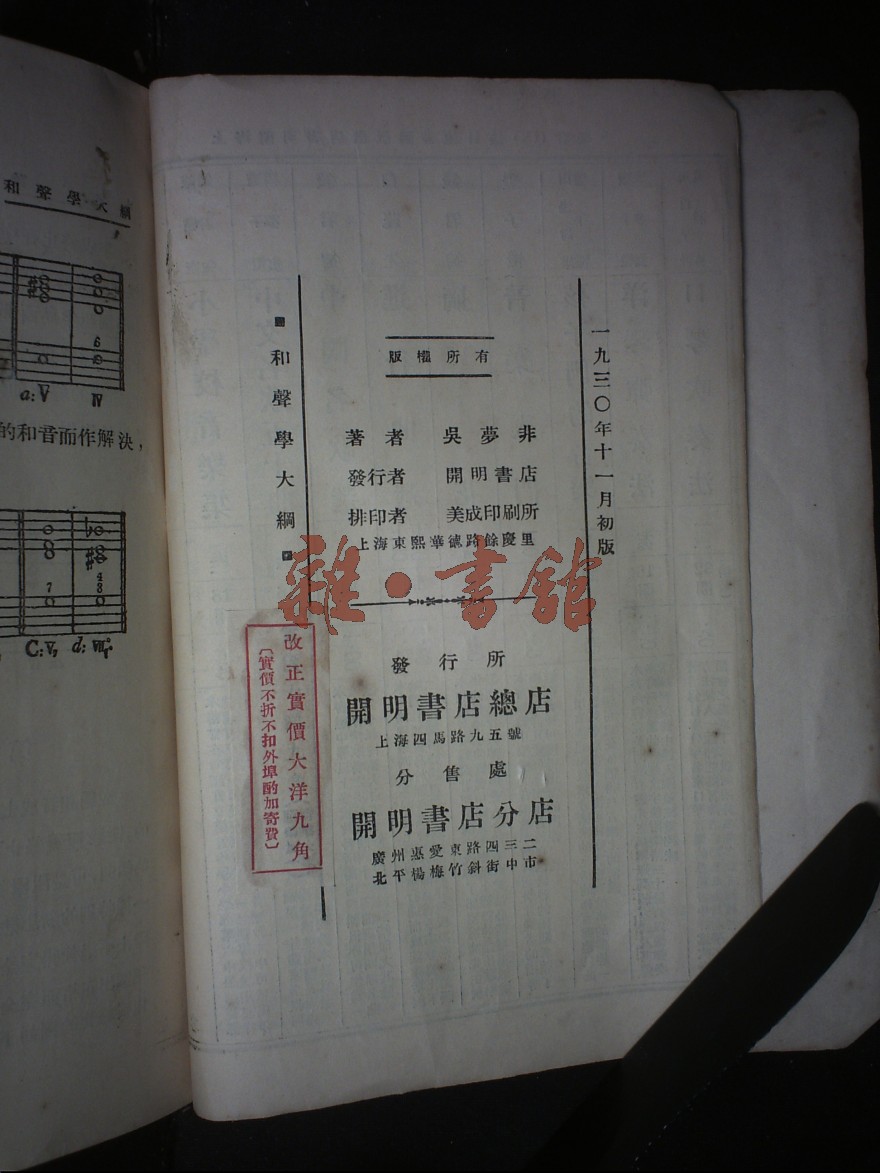 和聲學大綱
a:V
IV
6
的和音而作解決，
7
4
3
C:V₇
d:
一九三〇年十一月初版
版權所有
著者 吳夢非
發行者 開明書店
排印者 美成印刷所
上海東熙華德路餘慶里
發行所
開明書店總店
上海四馬路九五號
分售處
開明書店分店
廣州惠愛東路四三二
北平楊梅竹斜街中市
■和聲學大綱■
改正實價大洋九角
〔實價不折不扣外埠酌加寄費〕
雜·書館